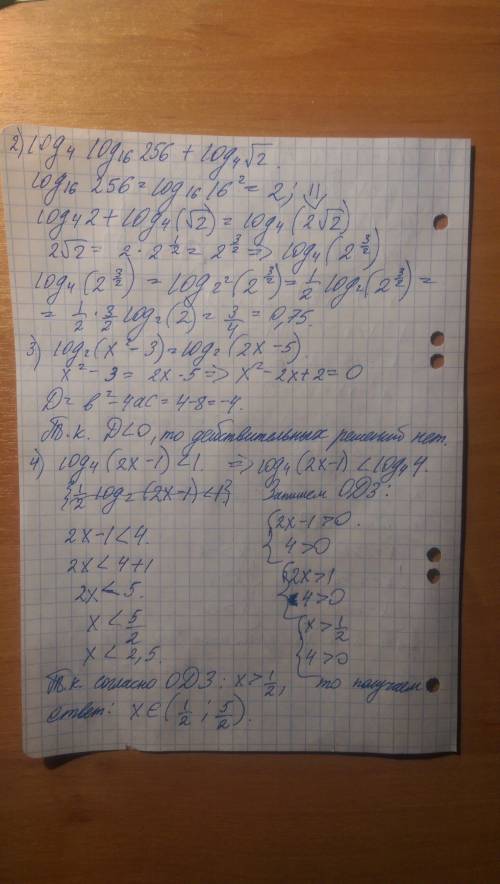 2) log₄ log₁₆ 256 + log₄√2.
log₁₆ 256 = log₁₆ 16² = 2; ⇓
log₄2 + log₄(√2) = log₄(2√2)
2√2 = 2·2^(1/2) = 2^(3/2) => log₄(2^(3/2))
log₄(2^(3/2)) = log₂²(2^(3/2)) = 1/2 log₂(2^(3/2)) =
= 1/2 · 3/2 log₂(2) = 3/4 = 0,75.
3) log₂(x² - 3) = log₂(2x - 5)
x² - 3 = 2x - 5 => x² - 2x + 2 = 0
D = b² - 4ac = 4 - 8 = -4.
Т.к. D<0, то действительных решений нет.
4) log₄(2x - 1) < 1. => log₄(2x - 1) < log₄4.
{1/2 log₂(2x - 1) < 1} Запишем ОДЗ:
2x - 1 < 4. {2x - 1 > 0.
2x < 4 + 1 4 > 0
2x < 5. {2x > 1
x < 5/2 4 > 0
x < 2,5. {x > 1/2
4 > 0
Т.к. согласно ОДЗ: x > 1/2, то получаем
ответ: x ∈ (1/2 ; 5/2).